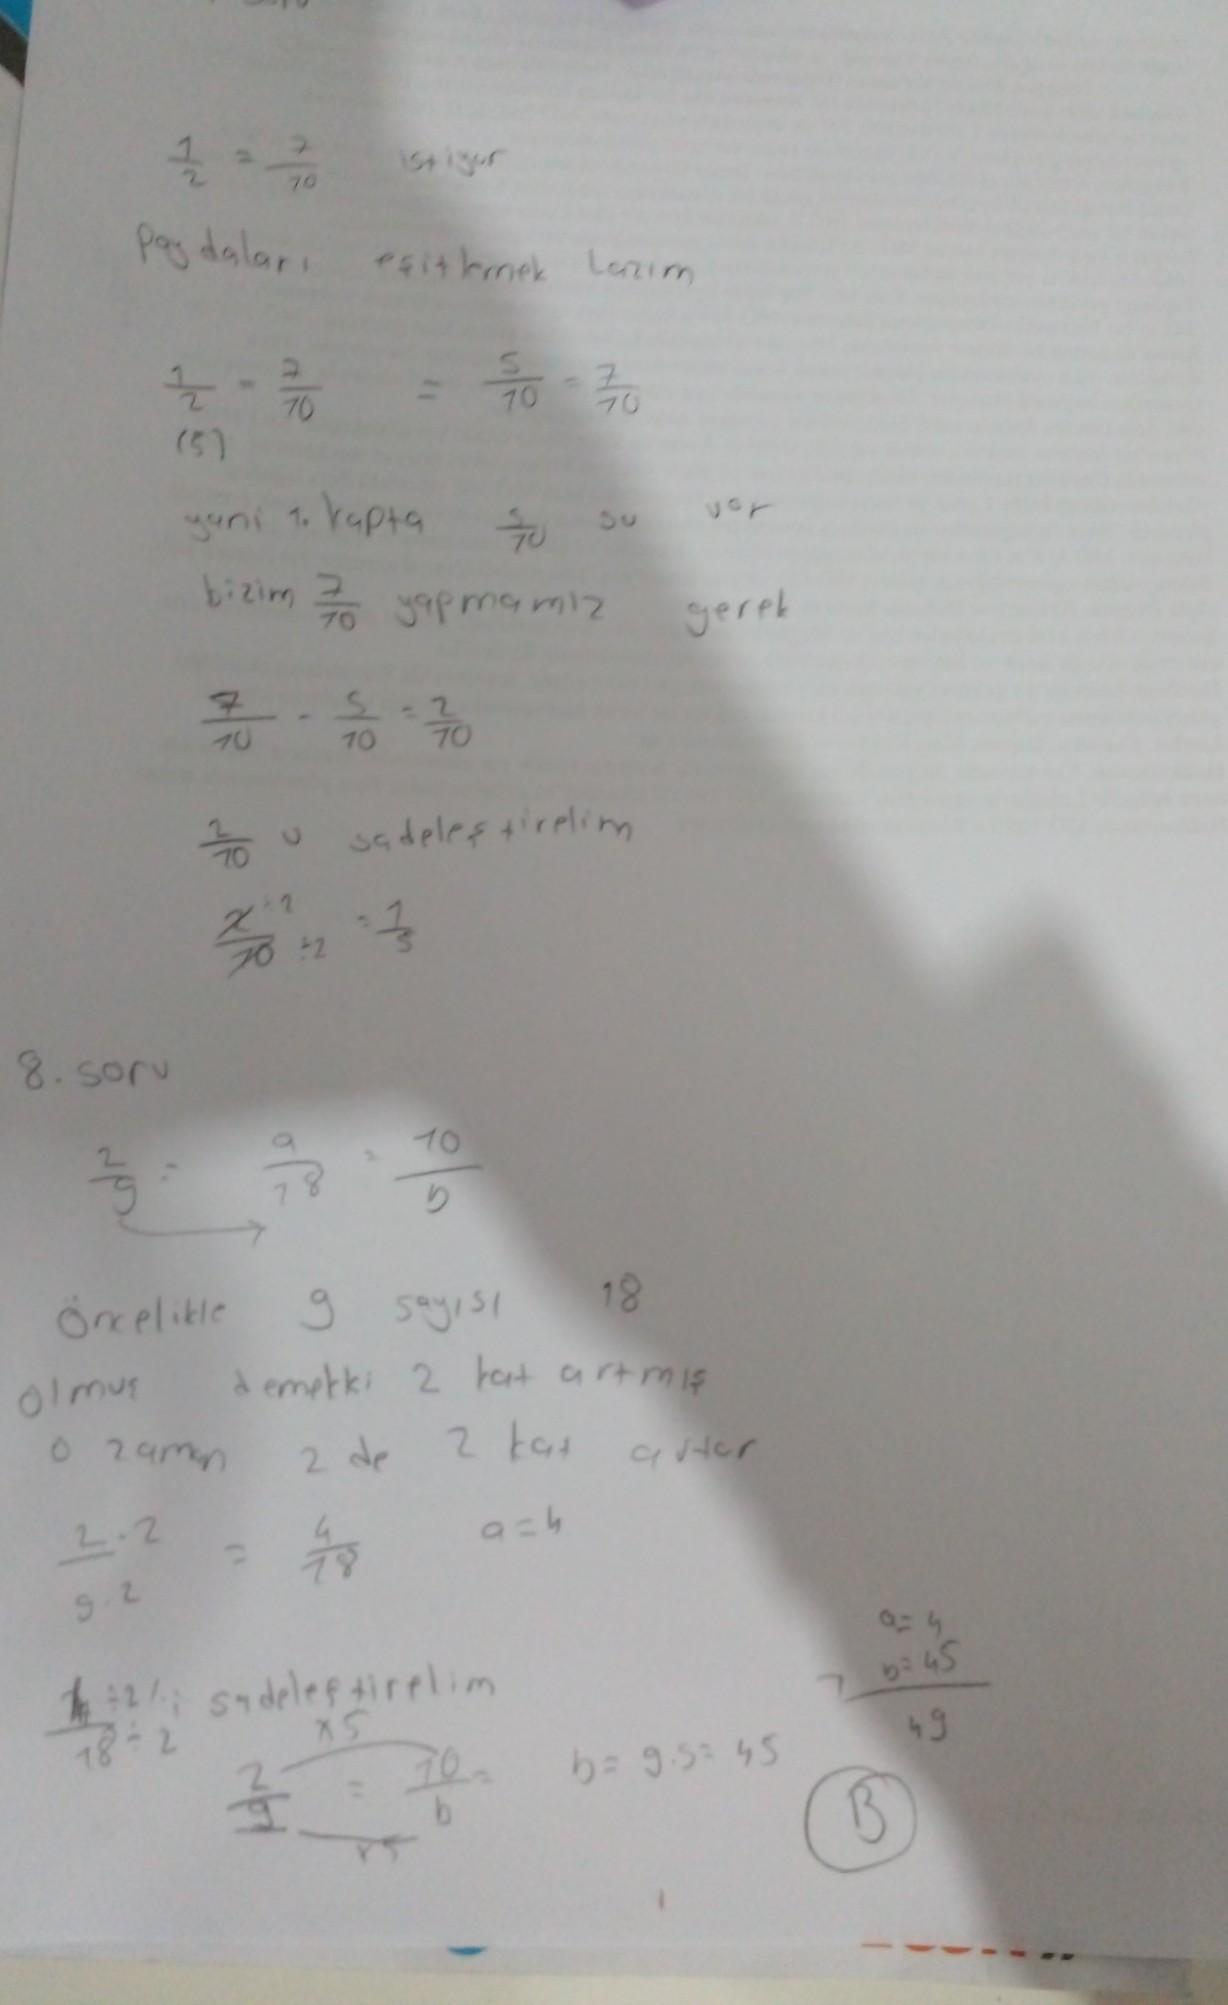 1/2 = 7/10 istiyor
Paydaları eşitlemek lazım
1/2 = 7/10 = 5/10 = 7/10
(5)
yani 1. kapta 5/10 su var
bizim 7/10 yapmamız gerek
7/10 - 5/10 = 2/10
2/10 u sadeleştirelim
2÷2/10÷2 = 1/5
8. soru
2/9 = a/18 = 10/b
Öncelikle 9 sayısı 18
olmuş demekki 2 kat artmış
o zaman 2 de 2 kat artar
2.2/9.2 = 4/18 a=4
4÷2/18÷2 i sadeleştirelim
x5
2/9 = 10/b = b= 9.5= 45
x5
a= 4
b= 45
49
B